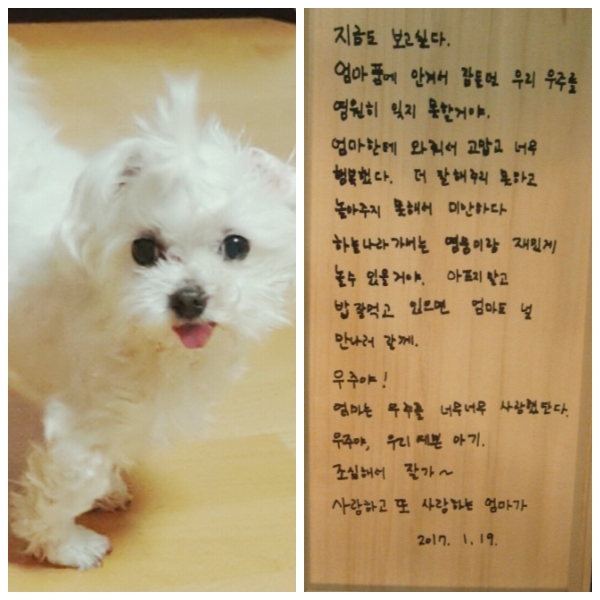 지금도 보고싶다.
엄마품에 안겨서 잠들던 우리 우주를
영원히 잊지 못할거야.
엄마한테 와줘서 고맙고 너무
행복했다. 더 잘해주지 못하고
놀아주지 못해서 미안하다
하늘나라가서는 명웅이랑 재밌게
놀수 있을거야. 아프지말고
밥 잘먹고 있으면 엄마도 널
만나러 갈께.
우주야!
엄마는 우주를 너무너무 사랑했단다.
우주야, 우리 예쁜 아기.
조심해서 잘가~
사랑하고 또 사랑하는 엄마가
2017. 1. 19.